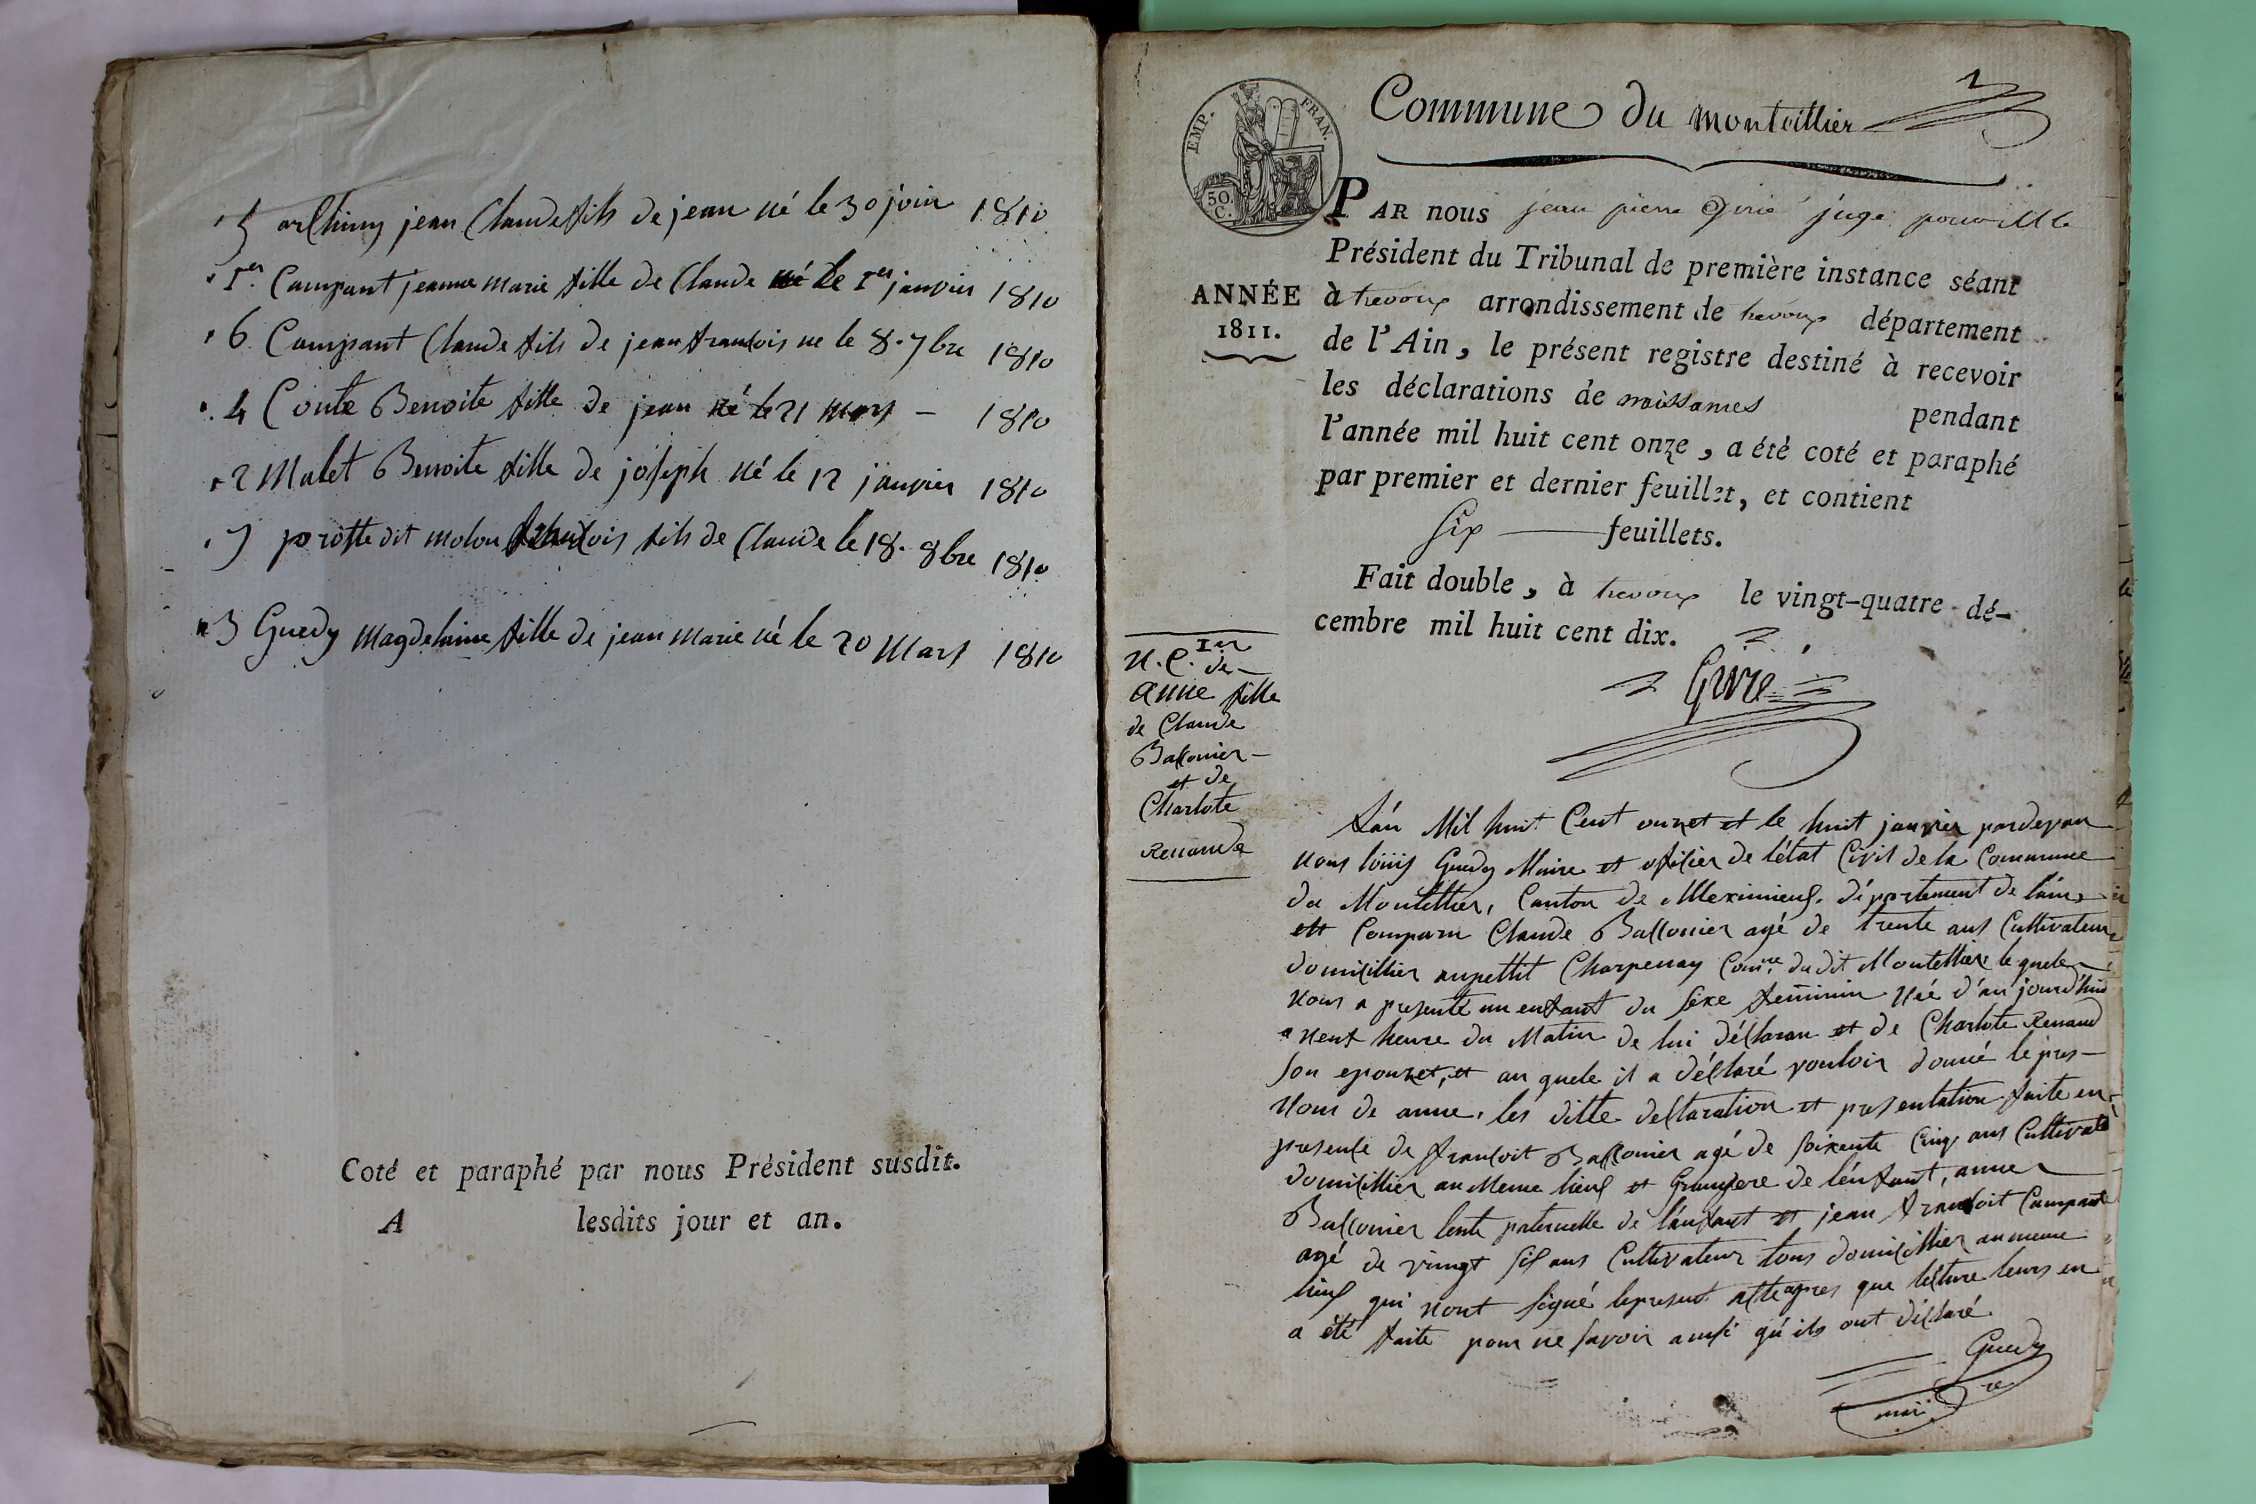 5 arChiny jean Claude fils de jean né le 30 join 1810
1er Campant jeanne marie fille de Claude né le 1er janvier 1810
6 Campant Claude fils de jean francois ne le 8. 7bre 1810
4 Conte Benoite fille de jean né le 21 mars — 1810
2 Malet Benoite fille de joseph né le 12 janvier 1810
7 dit molon francois fils de Claude le 18. 8bre 1810
3 Guedy Magdelaine fille de jean marie né le 20 Mars 1810
Coté et paraphé par nous Président susdit.
A lesdits jour et an.
EMP. FRAN.
50. C.
Commune du montellier
PAR nous jean pierre Girié juge pour M. le
Président du Tribunal de première instance séant
ANNÉE
1811.
à trevoux arrondissement de trevoux département
de l'Ain, le présent registre destiné à recevoir
les déclarations de naissances pendant
l'année mil huit cent onze, a été coté et paraphé
par premier et dernier feuillet, et contient
six feuillets.
Fait double, à trevoux le vingt-quatre dé-
cembre mil huit cent dix.
Girié
1er
N. C. de
anne fille
de Claude
Balconier
et de
Charlote
Renande
L'an Mil huit Cent onze et le huit janvier pardevan
nous louis Guedy Maire et officier de l'état Civil de la Commune
du Montellier, Canton de Meximieux, département de l'ain
est Comparu Claude Balconier agé de trente ans Cultivateur
domicillier au pettit Charpenay Comne dudit Montellier le quele
nous a presenté un enfant du sexe feminin Née d'au jourd'hui
a neuf heure du Matin de lui déclaran et de Charlote Renaud
son epouze, et au quele il a déclaré vouloir donné le pre-
nom de anne. les ditte declaration et presentation faite en
presence de francoit Balconier agé de soixente Cinq ans Cultivate
domicillier au Meme lieux et Grandpere de l'enfant, anne
Balconier tente paternelle de l'enfant et jean francoit Campant
agé de vingt six ans Cultivateur tous domicillier au meme
lieux qui nont signé le present acte apres que lecture leurs en
a été faite pour ne savoir ainsi qu'ils ont déclaré
Guedy
maire